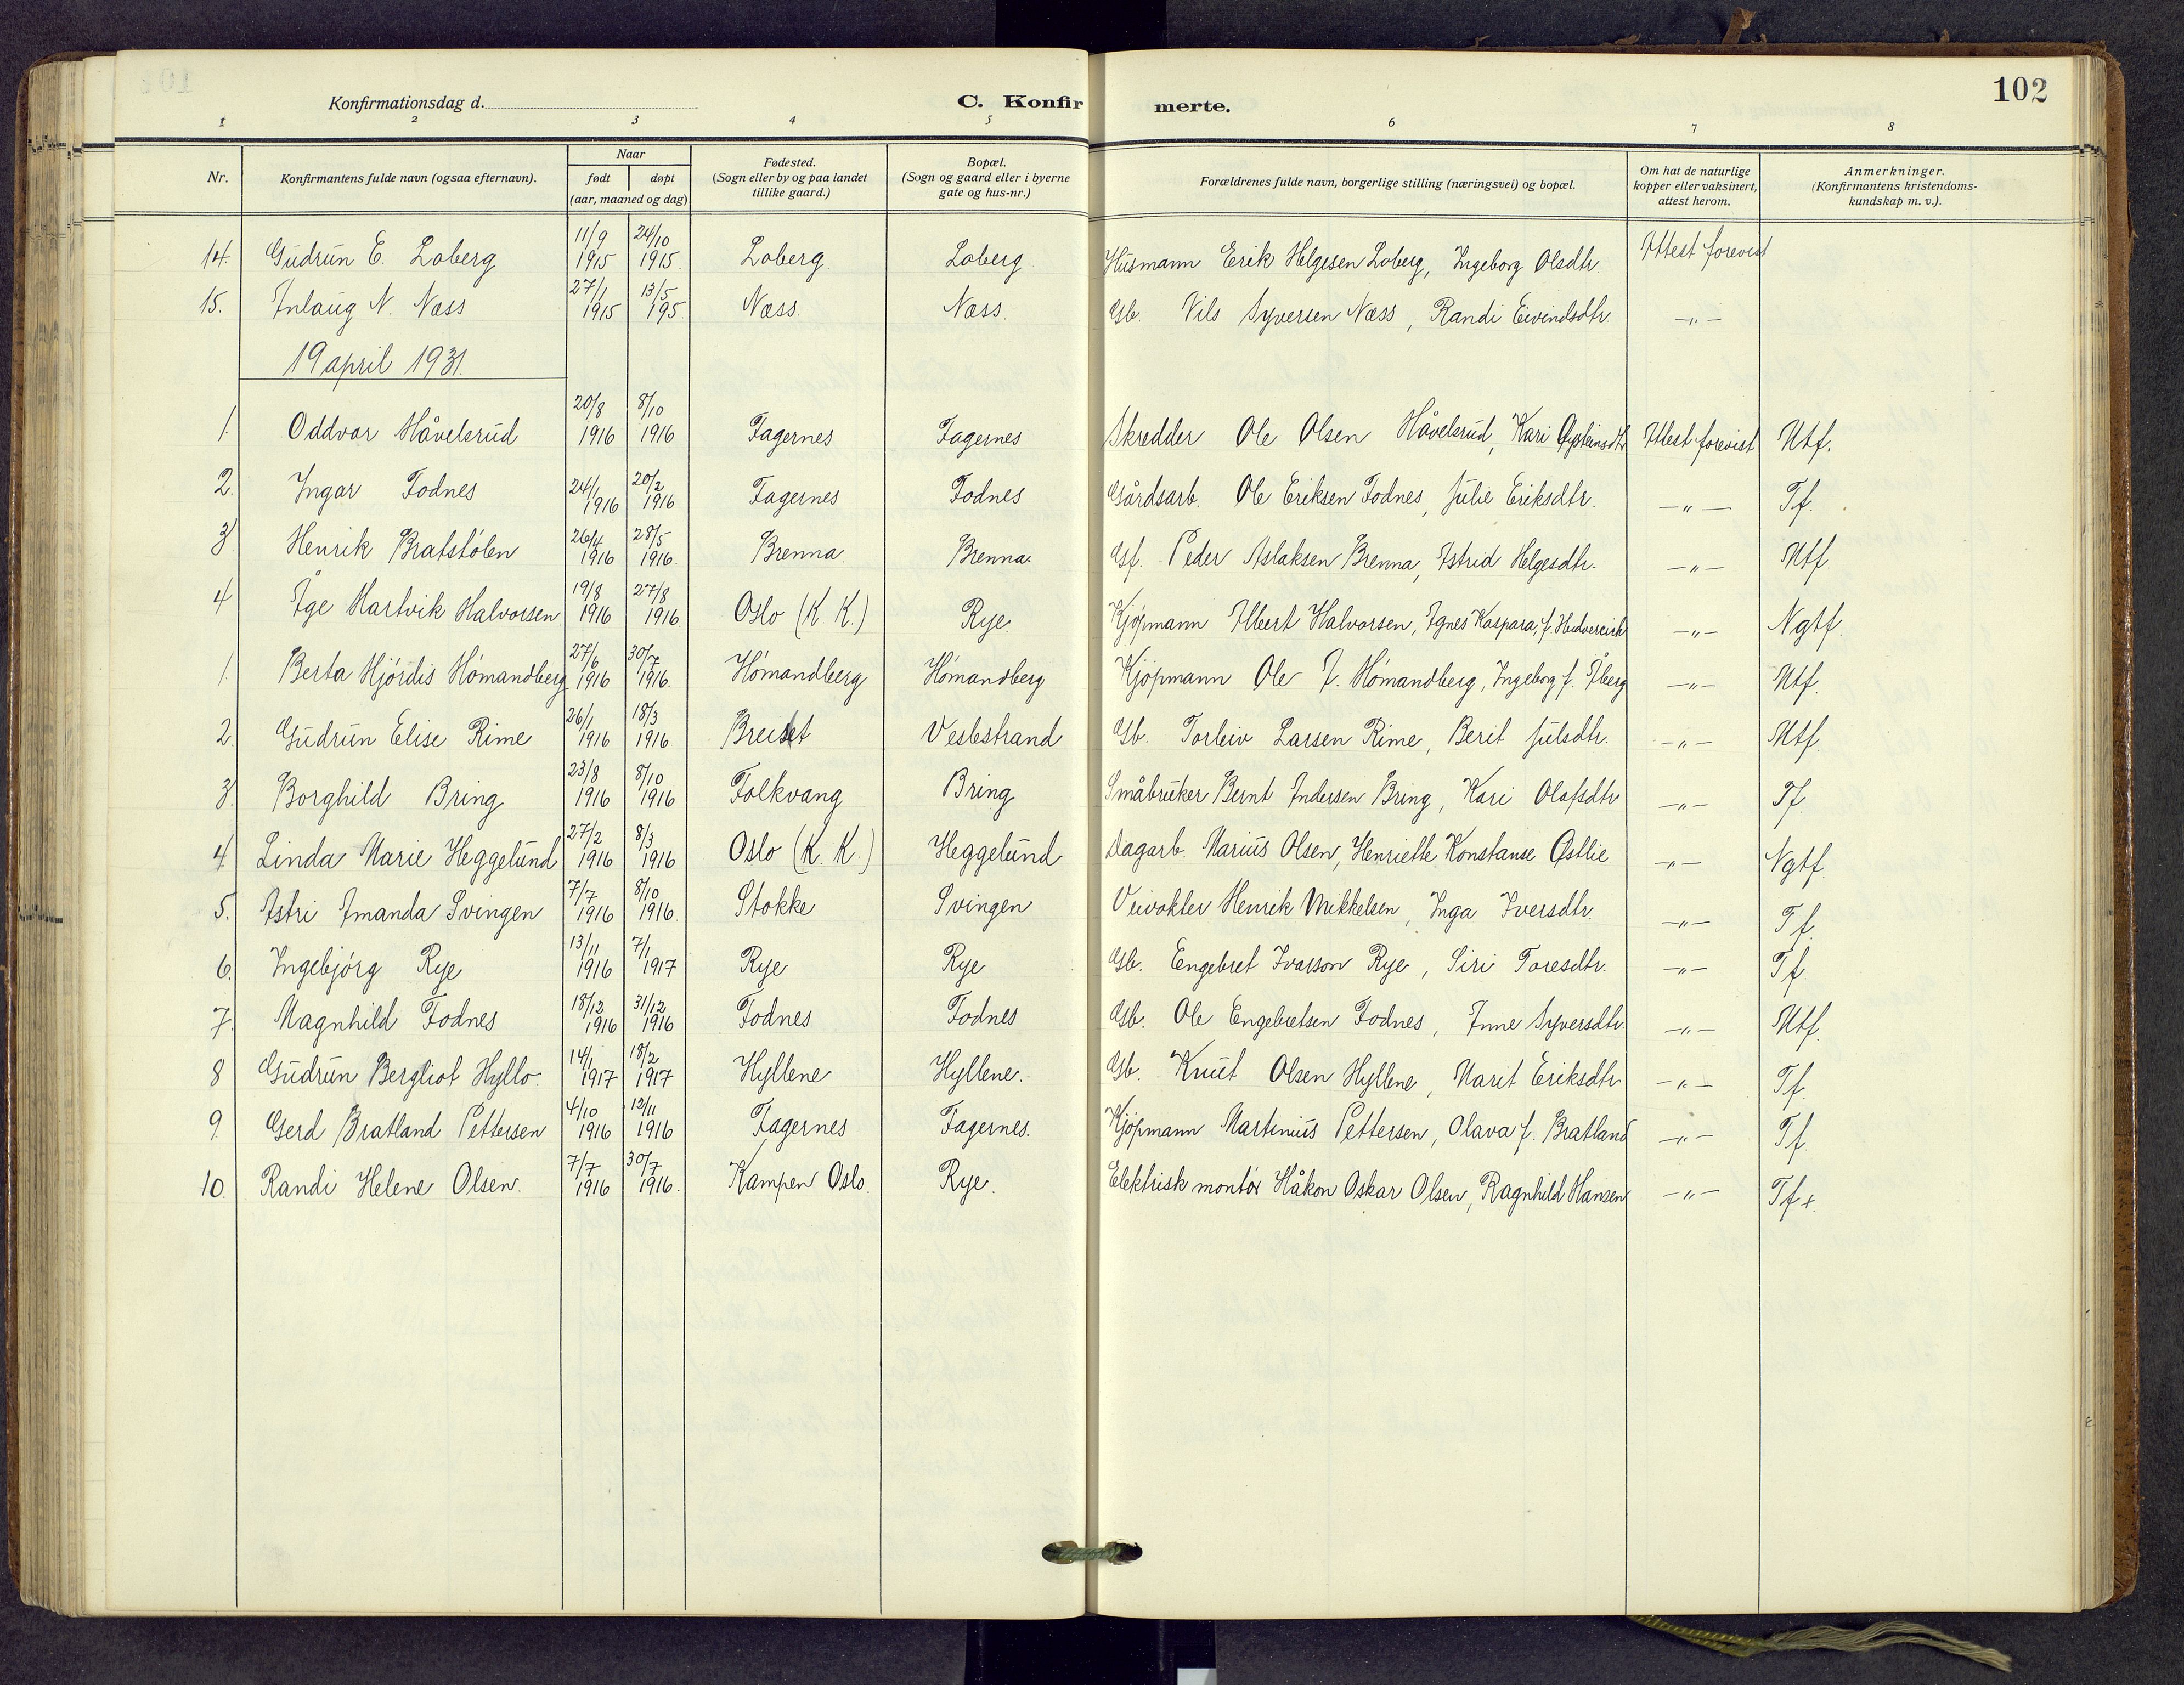 102
Konfirmationsdag d. C. Konfirmerte.
1 2 3 4 5 6 7 8
Nr. Konfirmantens fulde navn (ogsaa efternavn). Naar født døpt (aar, maaned og dag) Fødested. (Sogn eller by og paa landet tillike gaard.) Bopæl. (Sogn og gaard eller i byerne gate og hus-nr.) Forældrenes fulde navn, borgerlige stilling (næringsvei) og bopæl. Om hat de naturlige kopper eller vaksinert, attest herom. Anmerkninger. (Konfirmantens kristendoms-kundskap m. v.).
14. Gudrun E. Loberg 11/9 1915 24/10 1915. Loberg. Loberg Husmann Erik Helgesen Loberg, Ingeborg Olsdtr. Attest forevist
15. Anlaug N. Næss 27/1 1915 13/5 195. Næss. Næss. Gb. Nils Syversen Næss, Randi Eivindsdtr. —"—
19 april 1931.
1. Oddvar Håvelsrud 20/8 1916 8/10 1916 Fagernes Fagernes Skredder Ole Olsen Håvelsrud, Kari Øysteinsdtr. Attest forevist Mtf.
2. Ingar Fodnes 24/1 1916 20/2 1916 Fagernes Fodnes Gårdsarb. Ole Eriksen Fodnes, Julie Eriksdtr. —"— Tf.
3 Henrik Bratstølen 26/4 1916 28/5 1916. Brenna. Brenna. Gf. Peder Aslaksen Brenna, Astrid Helgesdtr. —"— Mtf.
4 Åge Hartvik Halvorsen 19/8 1916 27/8 1916 Oslo (K. K.) Rye. Kjøpmann Albert Halvorsen, Agnes Kaspara, f. —"— Ngtf.
1. Berta Hjördis Hömandberg 27/6 1916 30/7 1916. Hömandberg Hömandberg Kjöpmann Ole J. Hömandberg, Ingeborg f. Åberg —"— Mtf.
2. Gudrun Elise Rime 26/1 1916 18/3 1916. Breiset Veslestrand Gb. Torleiv Larsen Rime, Berit Julsdtr. —"— Mtf.
3. Borghild Bring 23/8 1916 8/10 1916 Folkvang Bring Småbruker Bernt Andersen Bring, Kari Olafsdtr. —"— Tf.
4. Linda Marie Heggelund 27/2 1916 8/3 1916 Oslo (K. K.) Heggelund Dagarb. Marius Olsen, Henriette Konstanse Østlie —"— Ngtf.
5. Astri Amanda Svingen 7/7 1916 8/10 1916. Stokke Svingen Veivokter Henrik Mikkelsen, Inga Iversdtr. —"— Tf.
6. Ingebjörg Rye 13/11 1916 7/1 1917 Rye Rye Gb. Engebret Ivarson Rye, Siri Toresdtr. —"— Tf.
7. Magnhild Fodnes 18/12 1916 31/12 1916 Fodnes Fodnes Gb. Ole Engebretsen Fodnes, Anne Syversdtr. —"— Mtf.
8 Gudrun Bergliot Hyllo. 14/1 1917 18/2 1917 Hyllene Hyllene. Gb. Knut Olsen Hyllene, Marit Eriksdtr. —"— Tf.
9. Gerd Bratland Pettersen 4/10 1916 12/11 1916 Fagernes Fagernes. Kjöpmann Martinius Pettersen, Olava f. Bratland —"— Tf.
10. Randi Helene Olsen. 7/7 1916 30/7 1916. Kampen Oslo. Rye. Elektrisk montör Håkon Oskar Olsen, Ragnhild Hansen —"— Tf+.